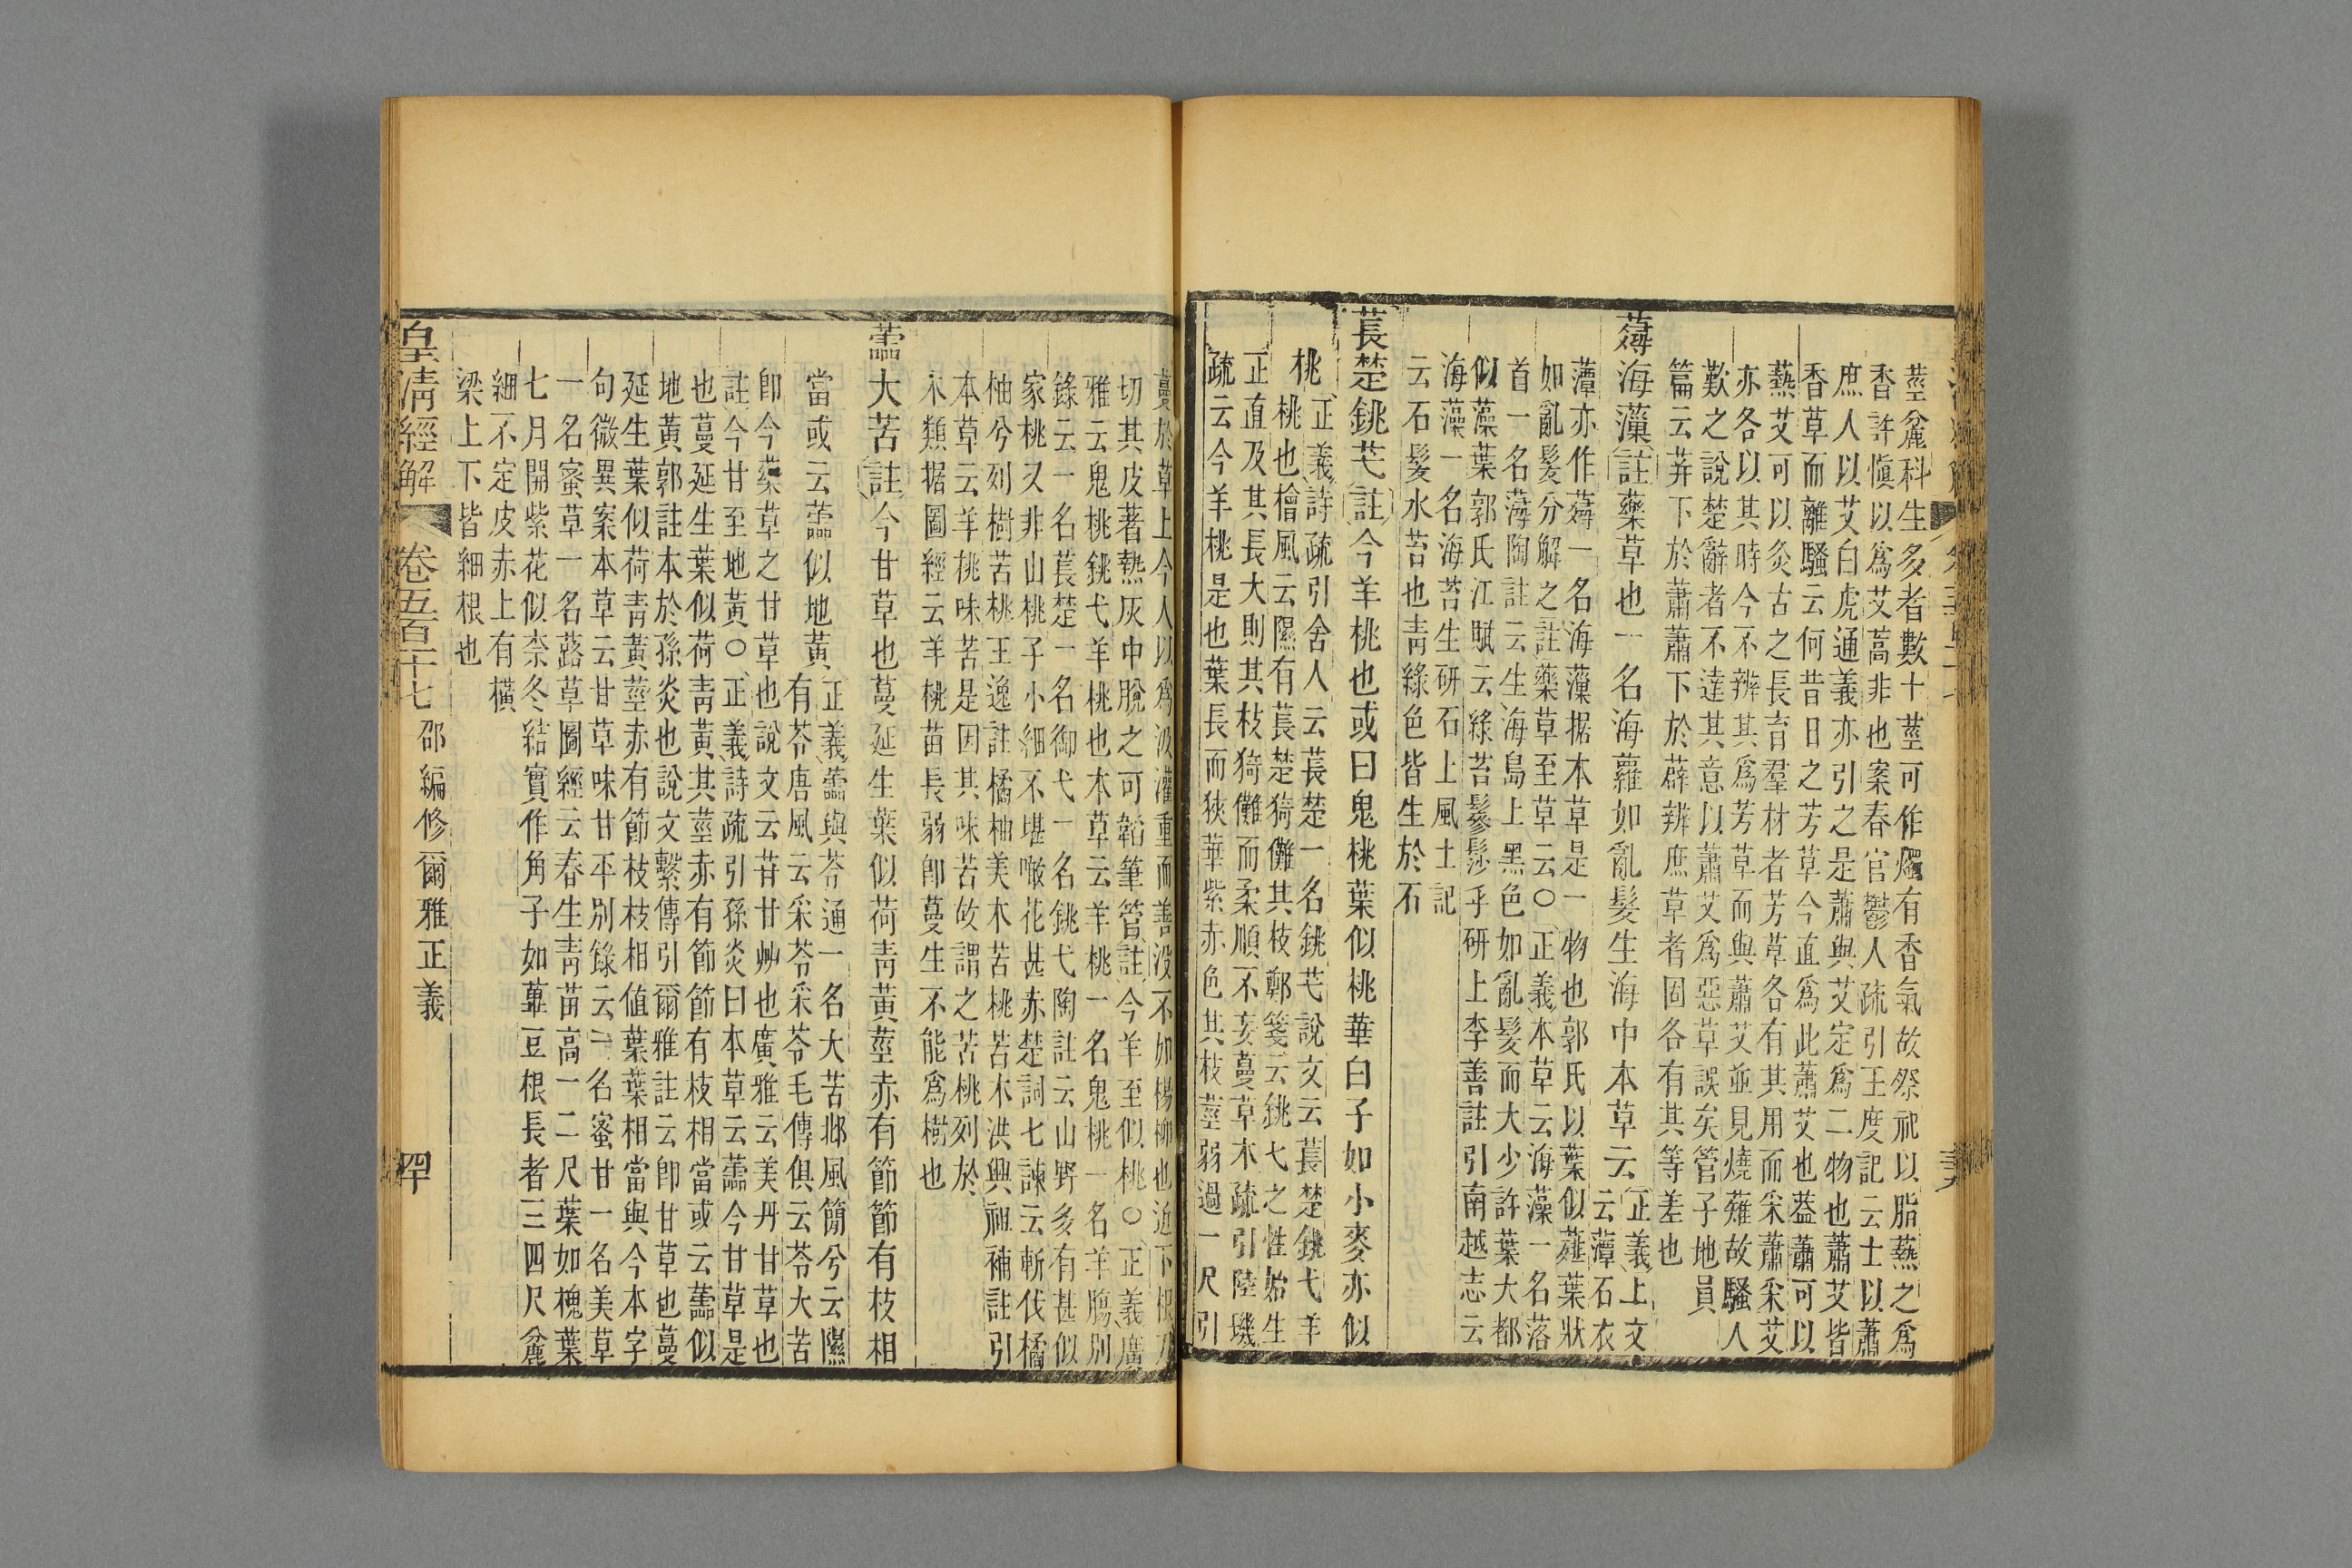 莖麤科生多者數十莖可作燭有香氣故祭祀以脂爇之爲
香許愼以爲艾蒿非也案春官鬱人疏引王度記云士以蕭
庶人以艾白虎通義亦引之是蕭與艾定爲二物也蕭艾皆
香草而離騷云何昔日之芳草今直爲此蕭艾也葢蕭可以
爇艾可以灸古之長育羣材者芳草各有其用而采蕭采艾
亦各以其時今不辨其爲芳草而與蕭艾並見燒薙故騷人
歎之說楚辭者不達其意以蕭艾爲惡草誤矣管子地員
篇云莾下於蕭蕭下於薜辨庶草者固各有其等差也
薚海薻註藥草也一名海蘿如亂髮生海中本草云正義上文
云薻石衣
薻亦作薚一名海薻据本草是一物也郭氏以葉似薤葉狀
如亂髮分解之註藥草至草云○正義本草云海藻一名落
首一名薚陶註云生海島上黑色如亂髮而大少許葉大都
似藻葉郭氏江賦云綠苔鬖髿乎研上李善註引南越志云
海藻一名海苔生研石上風土記
云石髮水苔也靑綠色皆生於石
萇楚銚芅註今羊桃也或曰鬼桃葉似桃華白子如小麥亦似
桃正義詩疏引舍人云萇楚一名銚芅說文云萇楚銚弋羊
桃也檜風云隰有萇楚猗儺其枝鄭箋云銚弋之性始生
正直及其長大則其枝猗儺而柔順不妄蔓草木疏引陸璣
疏云今羊桃是也葉長而狹華紫赤色其枝莖弱過一尺引
蔓於草上今人以爲汲灌重而善没不如楊柳也近下根刀
切其皮著熱灰中脫之可韜筆管註今羊至似桃○正義廣
雅云鬼桃銚弋羊桃也本草云羊桃一名鬼桃一名羊腸別
錄云一名萇楚一名御弋一名銚弋陶註云山野多有甚似
家桃又非山桃子小細不堪噉花甚赤楚詞七諫云斬伐橘
柚兮列樹苦桃王逸註橘柚美木苦桃苦木洪興祖補註引
本草云羊桃味苦是因其味苦故謂之苦桃列於
木類据圖經云羊桃苗長弱卽蔓生不能爲樹也
蘦大苦註今甘草也蔓延生葉似荷靑黃莖赤有節節有枝相
當或云蘦似地黃正義蘦與苓通一名大苦邶風簡兮云隰
有苓唐風云采苓采苓毛傳俱云苓大苦
卽今藥草之甘草也說文云苷甘艸也廣雅云美丹甘草也
註今甘至地黃○正義詩疏引孫炎曰本草云蘦今甘草是
也蔓延生葉似荷靑黃其莖赤有節節有枝相當或云蘦似
地黃郭註本於孫炎也說文繫傳引爾雅註云卽甘草也蔓
延生葉似荷靑黃莖赤有節枝枝相值葉葉相當與今本字
句微異案本草云甘草味甘平別錄云一名蜜甘一名美草
一名蜜草一名蕗草圖經云春生靑苗高一二尺葉如槐葉
七月開紫花似柰冬結實作角子如蓽豆根長者三四尺麤
細不定皮赤上有橫
梁上下皆細根也
皇淸經解 卷五百十七 邵編修爾雅正義 四十